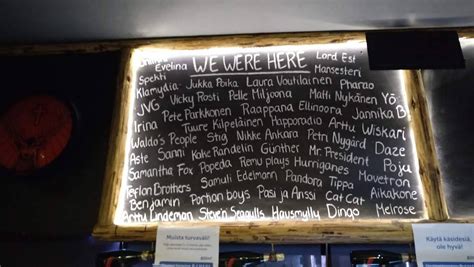 WE WERE HERE
Evelina
Lord Est
Spekti
Hansesteri
Klamydia Jukka Poika Laura Voutilainen Pharao
JVG Vicky Rosti Pelle Miljoona Matti Nykänen Yö
Irina Pete Parkkonen Raappana Ellinoora Jannika B
Tuure Kilpeläinen Happoradio Arttu Wiskari
Waldo's People Stig Nikke Ankara Petri Nygård Daze
Aste Sanni Kake Randelin Günther Mr. President Poju
Samantha Fox Popeda Remu plays Hurriganes Movetron
Teflon Brothers Samuli Edelmann Pandora Tippa
Benjamin Portion boys Pasi ja Anssi Cat Cat Aikakone
Arttu Lindeman Steven Seagulls Hausmylly Dingo Melrose
Muista turvaväli!
Käytä käsidesiä,
ole hyvä!